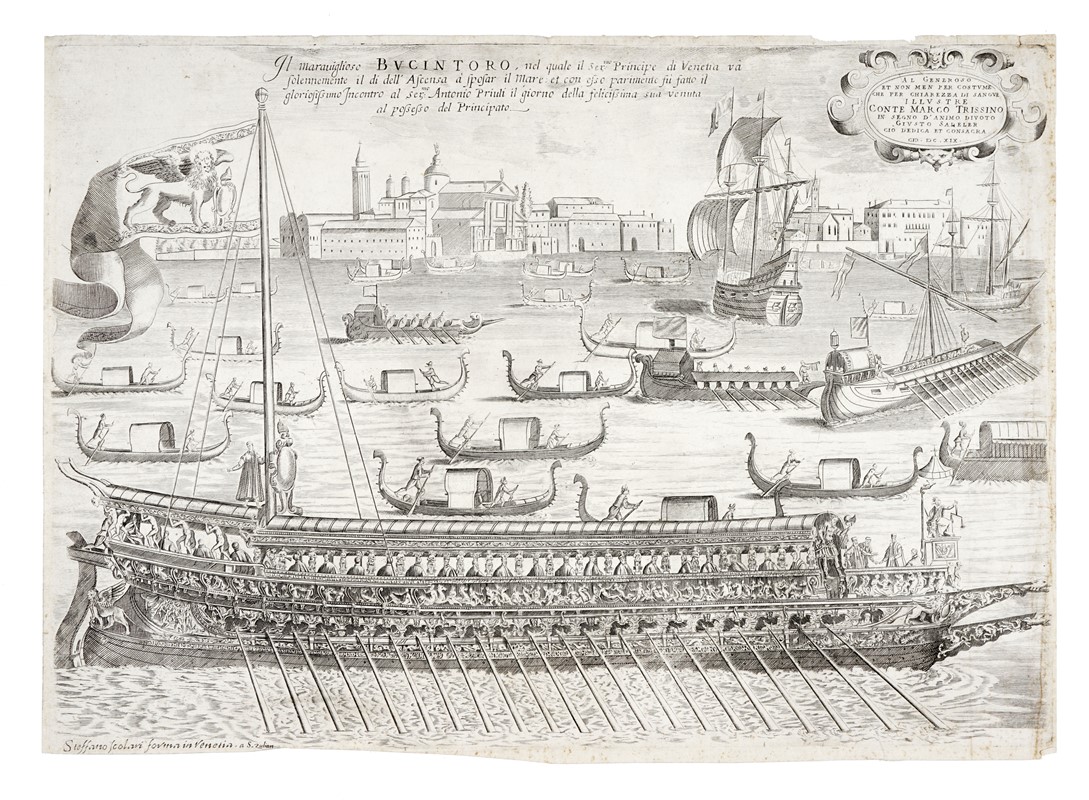 Il marauiglioso BVCINTORO, nel quale il Ser.mo Principe di Venetia uà
solennemente il di dell' Ascensa à sposar il Mare et con esso parimente fù fatto il
gloriosissimo Incontro al Ser.mo Antonio Priuli il giorno della felicissima sua uenuta
al possesso del Principato
AL GENEROSO
ET NON MEN PER COSTVMI
CHE PER CHIAREZZA DI SANGVE
ILLVSTRE
CONTE MARCO TRISSINO
IN SEGNO D'ANIMO DIVOTO
GIVSTO SADELER
CIO DEDICA ET CONSACRA
CIↃ·DC·XIX
Steffano scolari forma in Venetia. a S. zulian